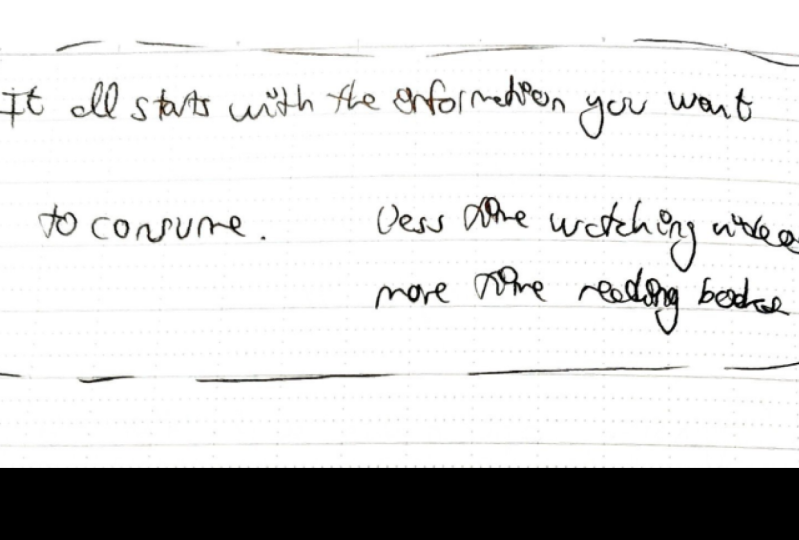 It all starts with the information you want
to consume. Less time watching videos
more time reading books